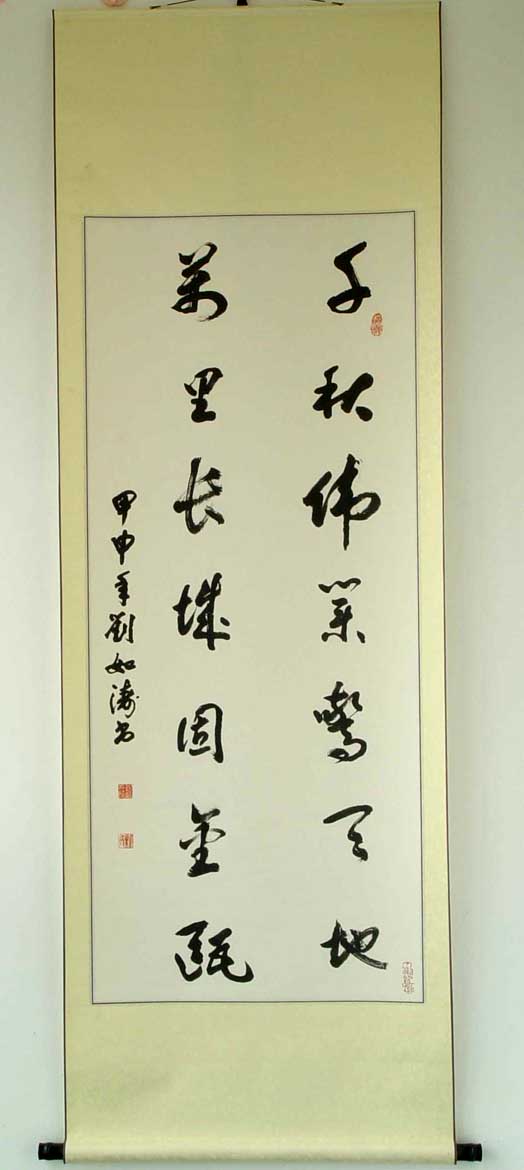 千秋伟業驚天地
萬里长城固金瓯
甲申年劉如涛书